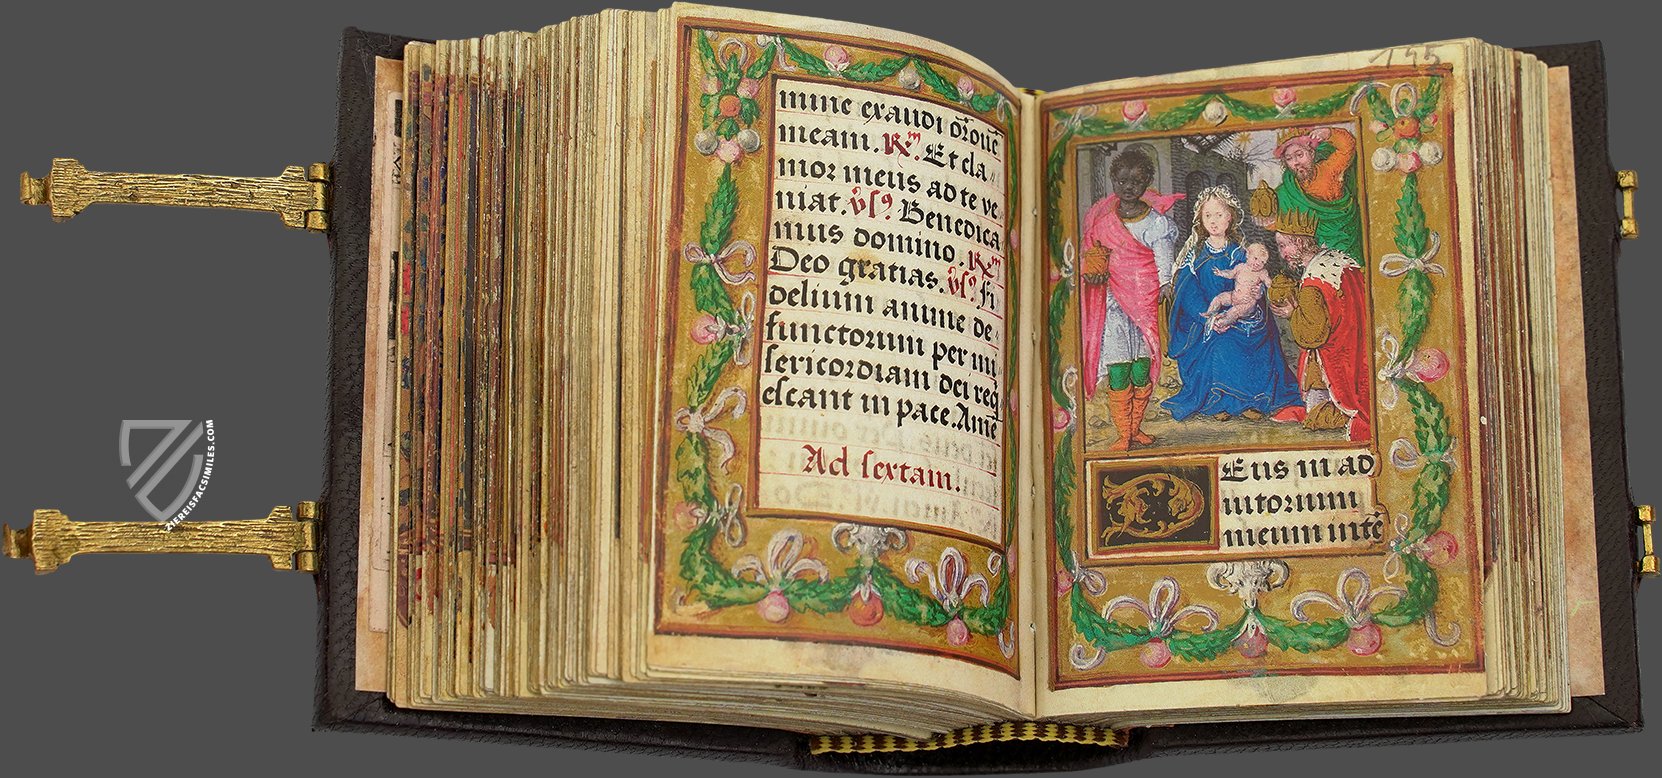 mine exaudi or̄one͞
meam. R̸m̄. Et cla
mor meus ad te ve
niat. v̄s9 Benedica
mus domino. R̸m̄
Deo gratias. v̄s9 Fi
delium anime de
functorum per mi
sericordiam dei req̄
escant in pace. Ame͞
Ad sextam.
195
Deus in ad
iutorium
meum inte͞
ZIEREISFACSIMILES.COM